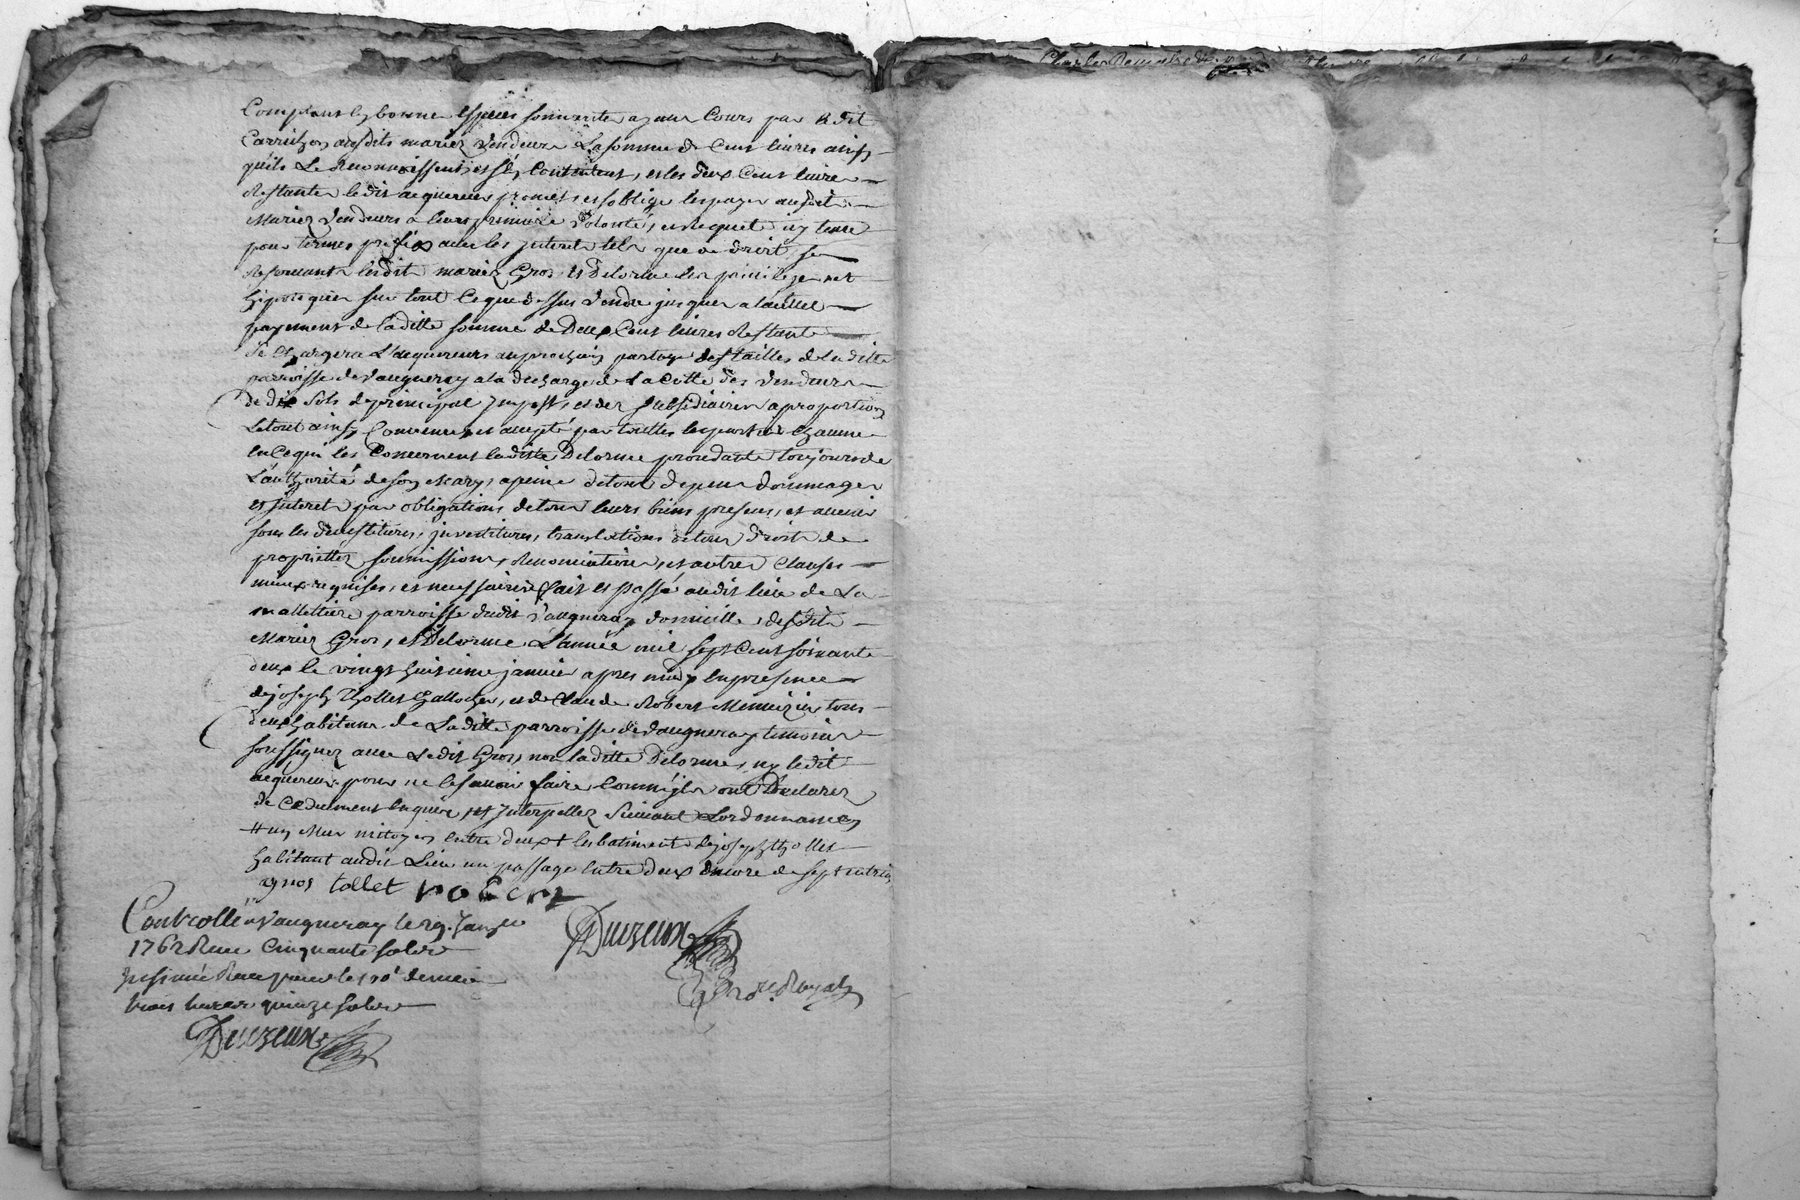 Comptant en bonnes espèces sonnante ayant Cours par le dit
Carrichon auxdits mariez vendeurs La somme de Cent livres ainsy
qu'ils Le Reconnoissent, et s'en Contentent, et les deux Cent livres
Restante ledit acquereur promet, et s'oblige les payer auxdits
Mariez vendeurs a leurs premiere volonté, et Requete n'y tenu
pour termes prefix avec les jnterets tels que de droit se
Reservants lesdits mariez Gros et Delorme les privileges et
hipoteques sur tout Ce que dessus vendu jusques a lactuel
payement de Laditte somme de Deux Cent livres Restante
Se Chargera L'acquereurs au prochain partage des tailles de la ditte
parroisse de Vaugneray a la decharge de La Cotte des vendeurs
de dix sols de principal jmpost, et des subsidiaires a proportion
Le tout ainsy Convenu, et accepté par touttes les parties Chacune
en Ce qui les Concernent laditte Delorme procedante toujours de
L'authorité de son Mary, a peine de tous depens dommages
et jnterets par obligations de tous leurs biens presens, et avenir
sous les devestitures, jnvestitures, translations de tous droits de
proprietté, soumissions, Renonciations, et autres Clauses
mieux requises, et necessaires fait et passé audit lieu de La
mallettiere parroisse dudit Vaugneray domicille, desdits
Mariez Gros, et Delorme L'année mil sept Cent soixante
deux le vingt huitieme janvier apres midy En presence
de joseph Thollet Galloche, et de Claude Robert Menuizier, tous
deux habitans de Laditte parroisse de Vaugneray temoins
soussignez avec Ledit Gros, non laditte Delorme, ny ledit
acquereur pour ne le savoir faire Comm'ils ont Declarez
de Ce dument Enquis, et jnterpellez suivant Lordonnance,
# un Mur mitoyen entre deux + les batiments de joseph thollet
habitant audit Lieu un passage entre deux Encore de septentrion
gros tollet roBert
Controllé a Vaugneray le 29. Janvier
1762 Reçu Cinquante sols
jnsinué Reçu pour le 100e denier
trois livres quinze sols
Duezeux
Duezeux
Nore. Royal